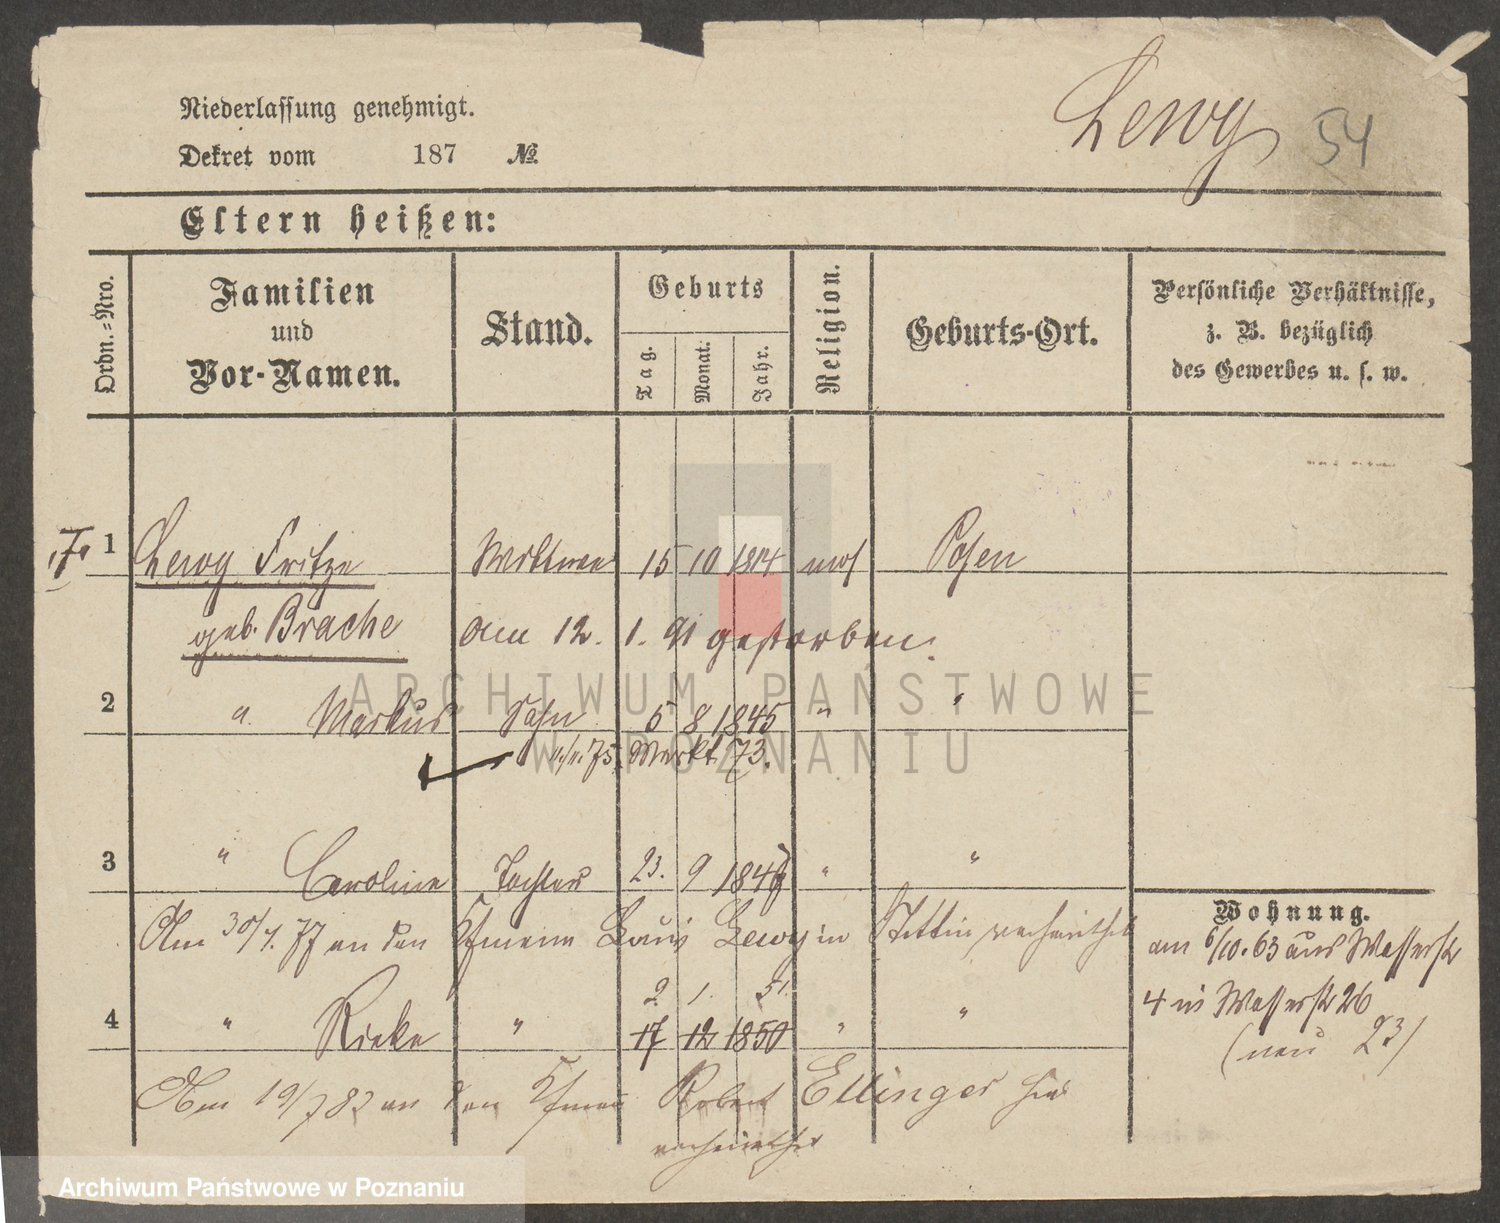 Lewy 54
Niederlassung genehmigt.
Dekret vom 187 №
Eltern heißen:
Ordn.-Nro.
Familien
und
Vor-Namen.
Stand.
Geburts
Tag.
Monat.
Jahr.
Religion.
Geburts-Ort.
Persönliche Verhältnisse,
z. B. bezüglich
des Gewerbes u. s. w.
1 Lewy Fritze Wittwe 15 10 1814 mos Posen
geb. Brache am 12. 1. 91 gestorben.
2 " Markus Sohn 5 8 1845 " "
75. Markt 73.
3 " Caroline Tochter 23. 9 184 " "
Am 30/4. 77 an den Kfmann Louis Lewy in Stettin verheirathet
2. 1. 51.
4 " Rieke " 17 12 1850 " "
Am 19/7 82 an den Kfman Robert Ellinger hier
verheirathet
Wohnung.
am 6/10. 63 aus Wasserstr
4 in Wasserstr 26
(neu 23)
ARCHIWUM PAŃSTWOWE
W POZNANIU
Archiwum Państwowe w Poznaniu